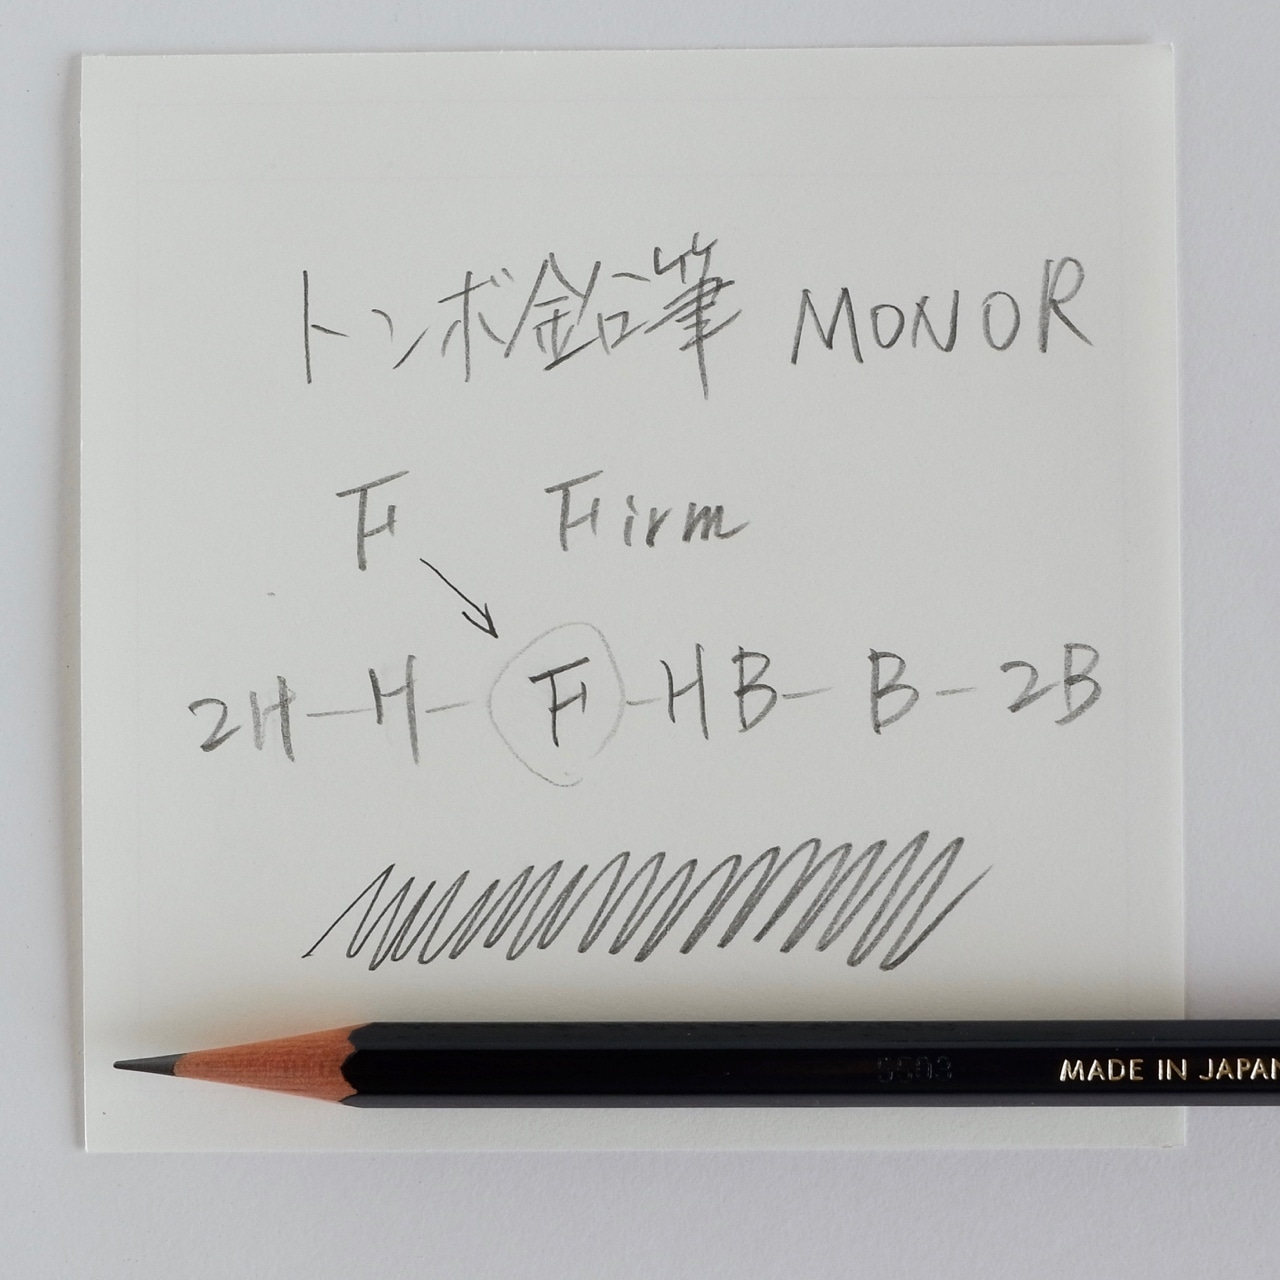 トンボ鉛筆 MONO R
F Firm
2H-H-F-HB-B-2B
5503 MADE IN JAPAN